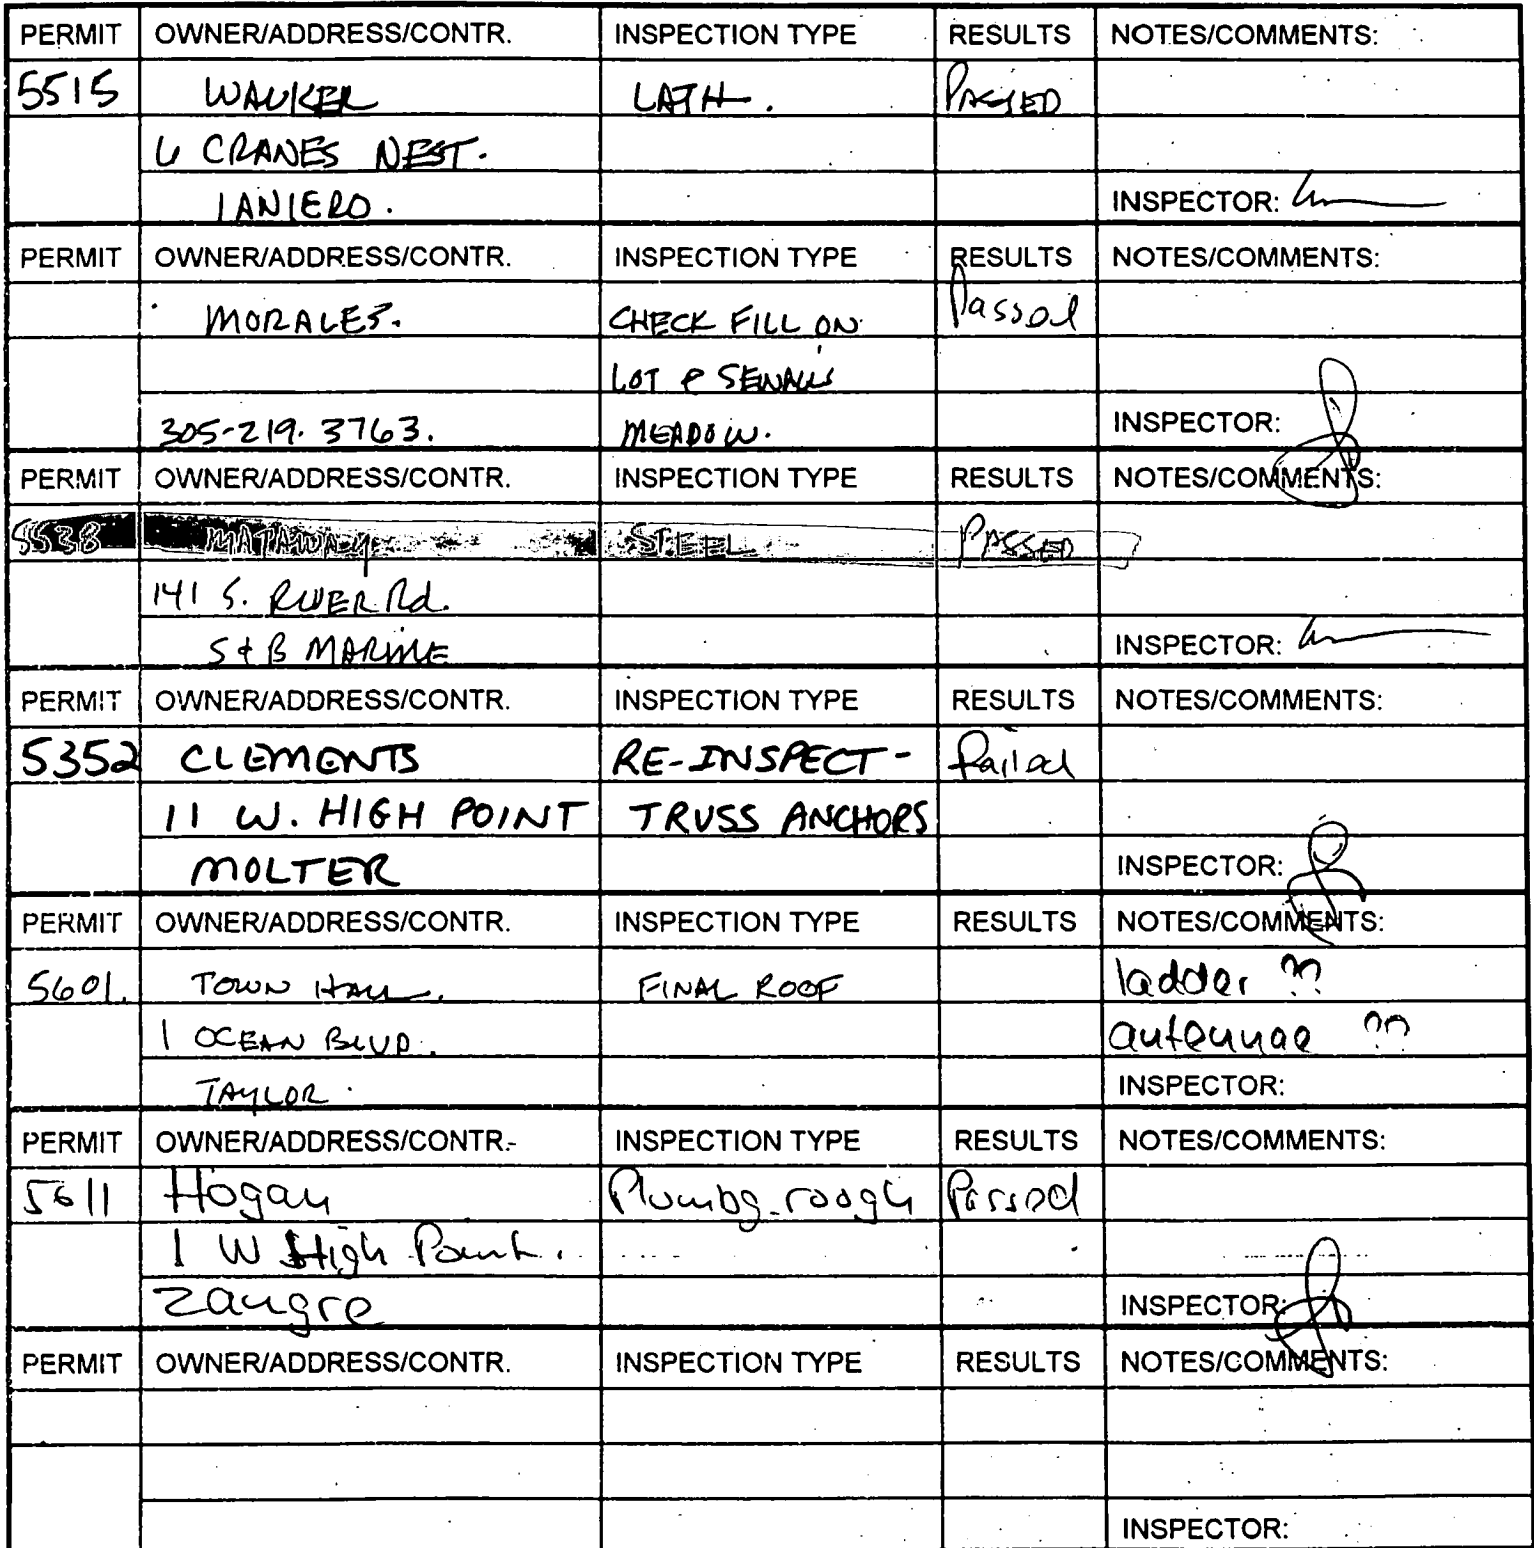 PERMIT OWNER/ADDRESS/CONTR. INSPECTION TYPE RESULTS NOTES/COMMENTS:
5515 WALKER LATH. PASSED
6 CRANES NEST.
LANIERO. INSPECTOR:
PERMIT OWNER/ADDRESS/CONTR. INSPECTION TYPE RESULTS NOTES/COMMENTS:
MORALES. CHECK FILL ON Passed
LOT @ SEWALLS
305-219.3763. MEADOW. INSPECTOR:
PERMIT OWNER/ADDRESS/CONTR. INSPECTION TYPE RESULTS NOTES/COMMENTS:
5538 STEEL PASSED
141 S. RIVER Rd.
S+B MARINE INSPECTOR:
PERMIT OWNER/ADDRESS/CONTR. INSPECTION TYPE RESULTS NOTES/COMMENTS:
5352 CLEMENTS RE-INSPECT- failed
11 W. HIGH POINT TRUSS ANCHORS
MOLTER INSPECTOR:
PERMIT OWNER/ADDRESS/CONTR. INSPECTION TYPE RESULTS NOTES/COMMENTS:
5601. TOWN HALL. FINAL ROOF ladder ??
1 OCEAN BLVD. antennae ??
TAYLOR. INSPECTOR:
PERMIT OWNER/ADDRESS/CONTR. INSPECTION TYPE RESULTS NOTES/COMMENTS:
5611 Hogan Plumbg. rough Passed
1 W High Point.
Zangre INSPECTOR:
PERMIT OWNER/ADDRESS/CONTR. INSPECTION TYPE RESULTS NOTES/COMMENTS:
INSPECTOR: